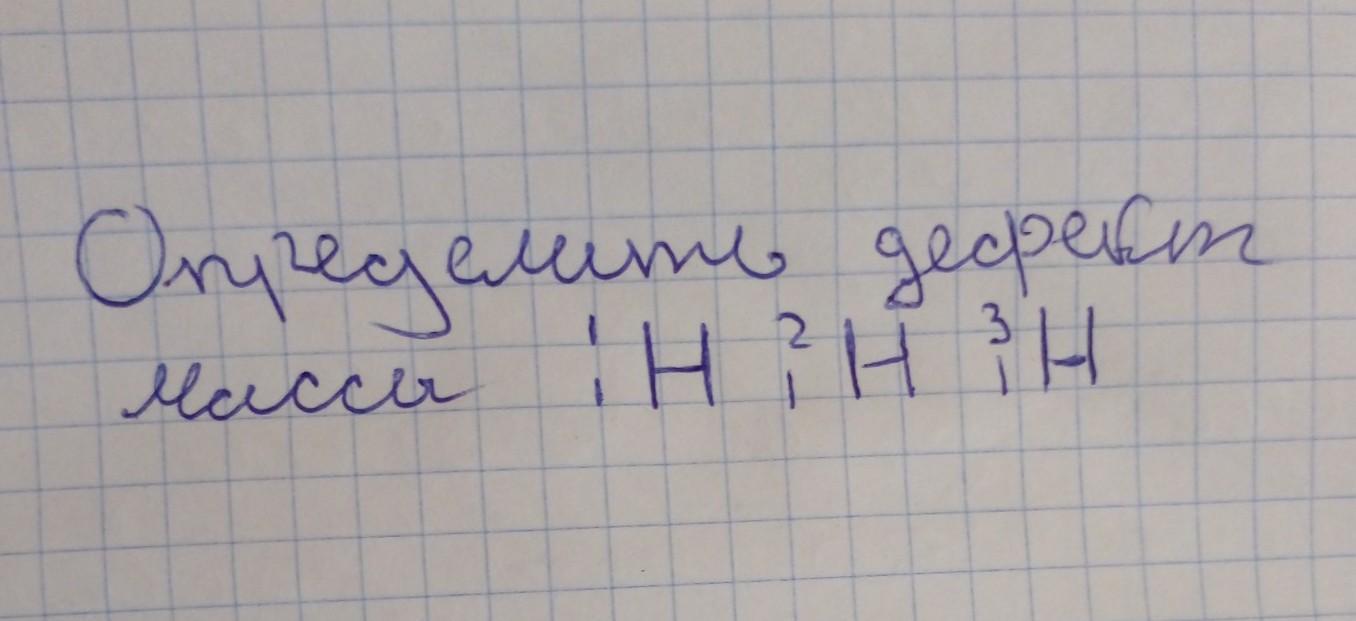 Определить дефект
массы ¹₁H ²₁H ³₁H